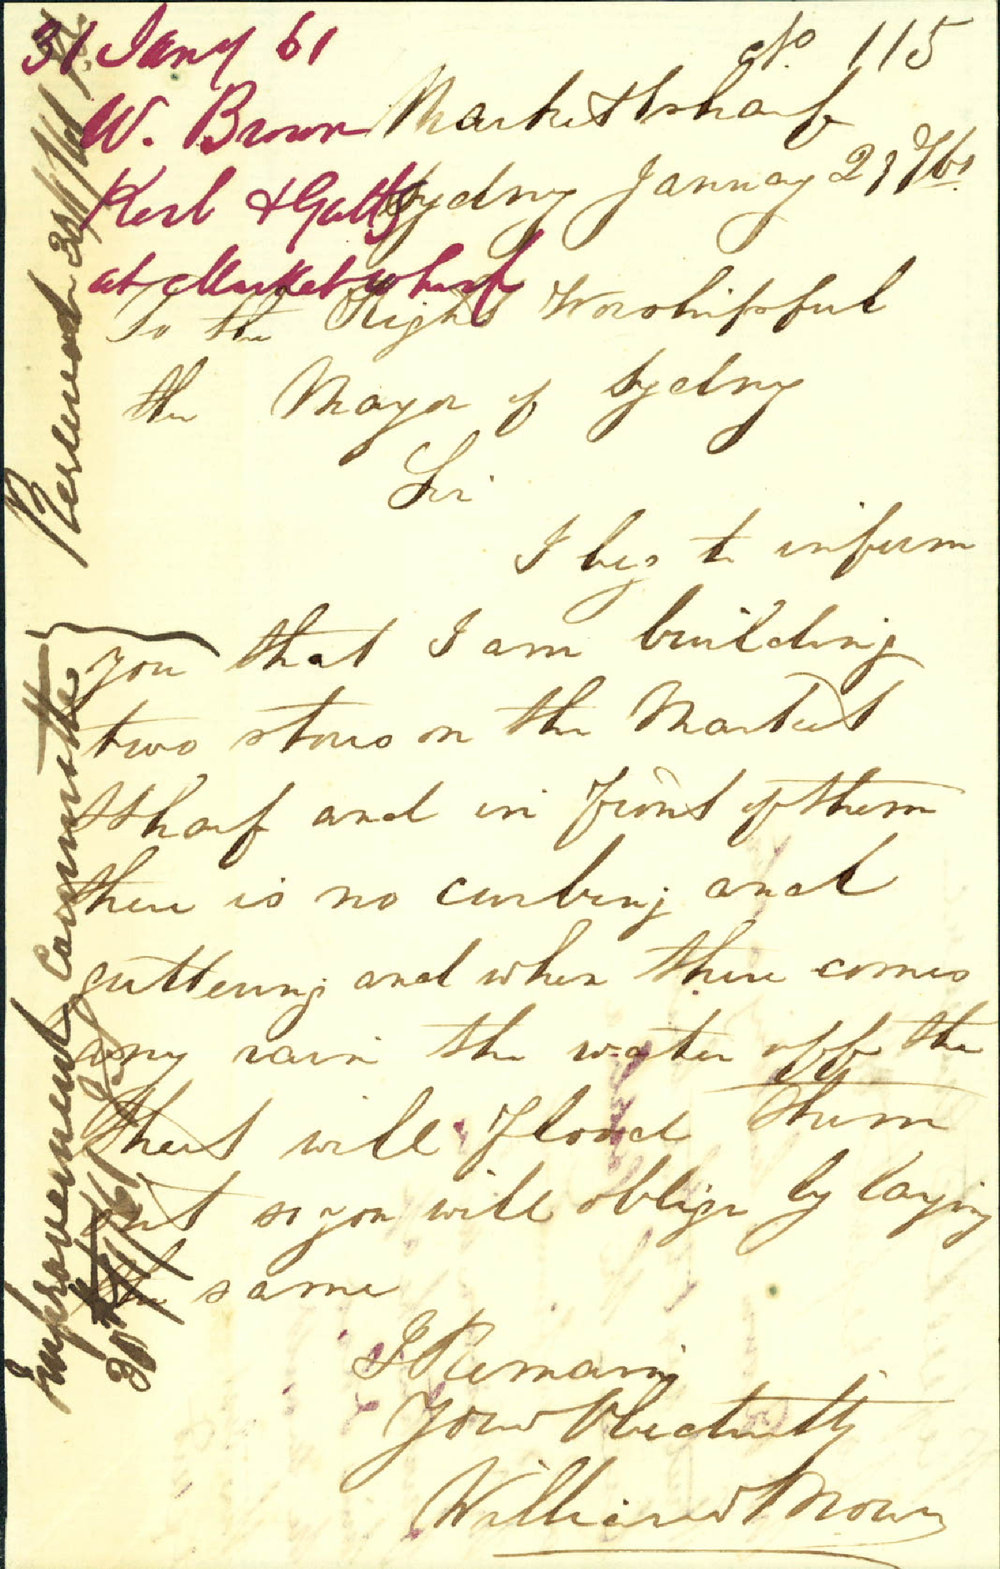 31 Jany 61
No. 115
W. Brown
Market Wharf
Kerb & Gutt
Sydney January 29th /61
at Market Wharf
To the Right Worshipful
the Mayor of Sydney
Sir
I beg to inform
you that I am building
two stores on the Market
Wharf and in front of them
there is no curbing and
guttering and when there comes
any rain the water off the
will flood them
out so you will oblige by laying
the same
I Remain
Your Obediently
William
Received 30/1/61
Improvement Committee
30/1/61